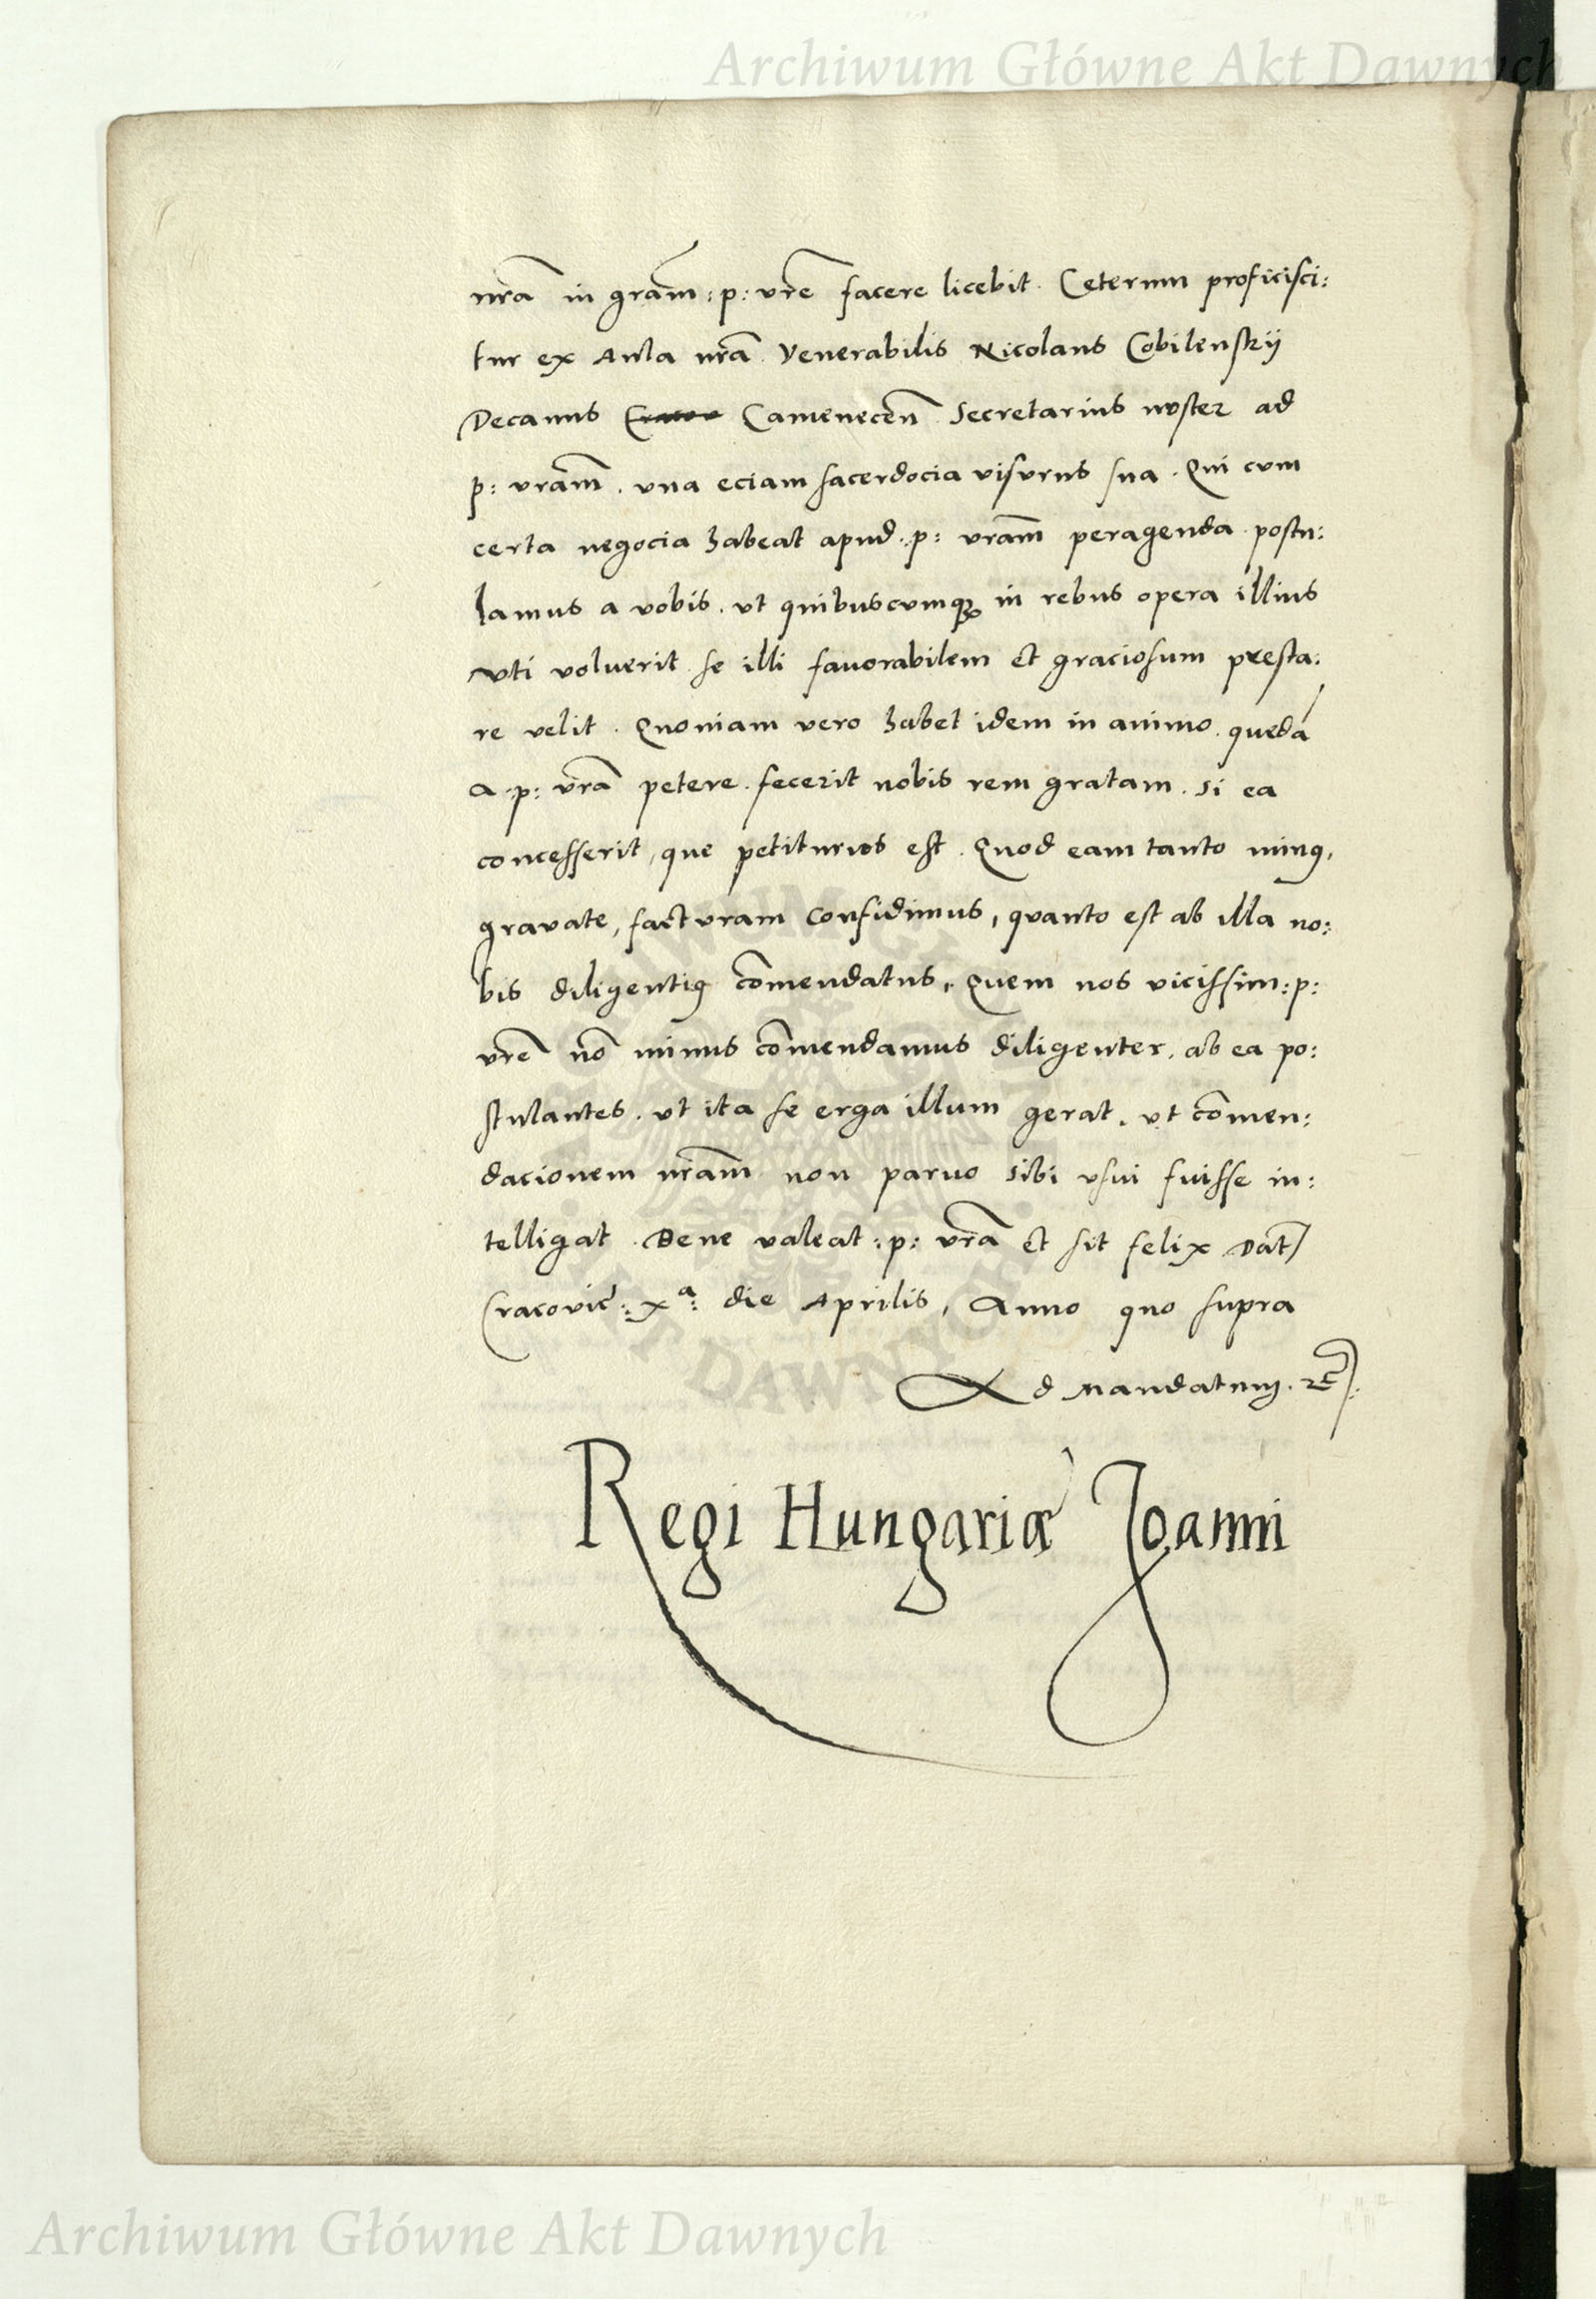 Archiwum Główne Akt Dawnych
nrã in grãm : p : vrẽ facere licebit . Ceterum proficisci:
tur ex Aula nrã . Venerabilis Nicolaus Cobilenskij
Decanus Camenecen̄ . Secretarius noster ad
p : vrãm . vna eciam sacerdocia visurus sua . Qui cum
certa negocia habeat apud : p : vrãm peragenda . postu:
lamus a vobis . vt quibuscumqꝫ in rebus opera illius
vti voluerit . se illi fauorabilem et graciosum presta:
re velit . Quoniam vero habet idem in animo . quedã
A : p : vrã petere . fecerit nobis rem gratam . si ea
concesserit , que petiturus est . Quod eam tanto minꝰ ,
gravate , facturam confidimus , quanto est ab illa no:
bis diligentiꝰ com̃endatus , Quem nos vicissim : p :
vrẽ nõ minus com̃endamus diligenter , ab ea po:
stulantes . vt ita se erga illum gerat . vt com̃en:
dacionem nrãm non paruo sibi vsui fuisse in:
telligat . Bene valeat : p : vrã et sit felix Dat̃
Cracovie : xª : die Aprilis , Anno quo supra
Ad Mandatum . rc̃ .
Regi Hungariæ Joanni
DAWNYCH
Archiwum Główne Akt Dawnych